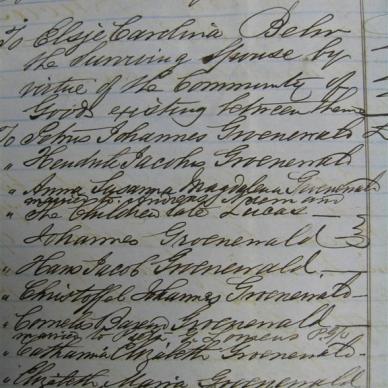 To Elsje Carolina Behr
the surviving spouse by
virtue of the Community of
Goods existing between them
To Petrus Johannes Groenewald
" Hendrik Jacobus Groenewald
" Anna Susanna Magdalena Groenewald
married to Andreas and
" The Children late Lucas
Johannes Groenewald
" Hans Jacob Groenewald
" Christoffel Johannes Groenewald
" Cornelis Groenewald
married to
" Catharina Elizabeth Groenewald
" Elizabeth Maria Groenewald